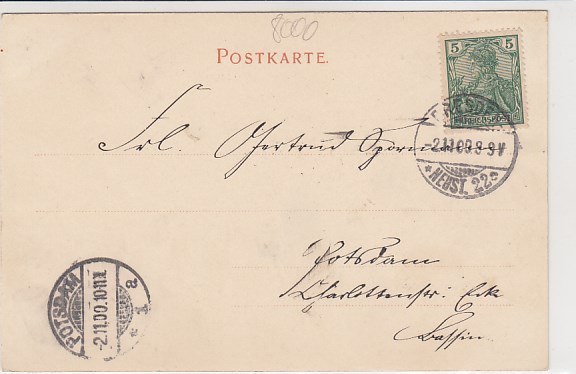 8000
POSTKARTE.
5 5
REICHSPOST
DRESDEN
-2.11.00.8-9V
* NEUST. 22c
Frl. Gertrud Sporner
Potsdam
Charlottenstr. Ecke
Bassin.
POTSDAM
-2.11.00.10-11.
* 1 a